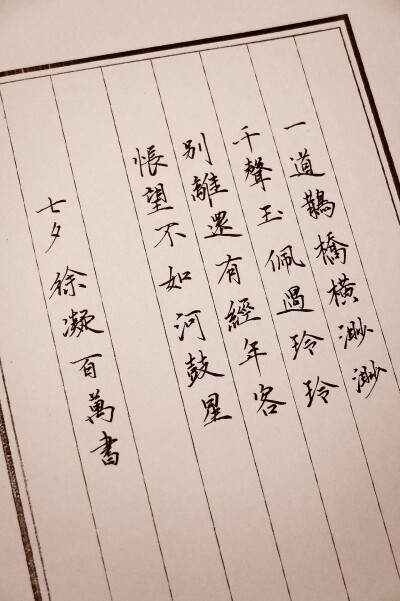 一道鵲橋橫渺渺
千聲玉佩過玲玲
別離還有經年客
悵望不如河鼓星
七夕 徐凝 百萬書